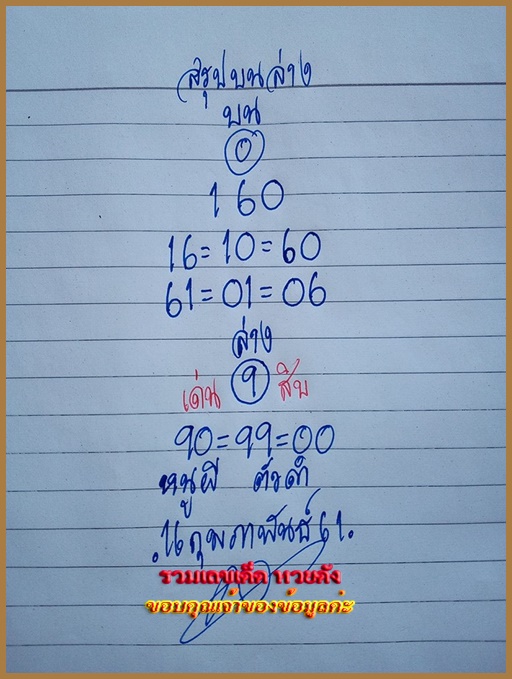 สรุปบนล่าง
บน
0
160
16=10=60
61=01=06
ล่าง
เด่น 9 สิบ
90=99=00
หนูผี ตัวดำ
.16 กุมภาพันธ์ 61.
รวมเลขเด็ด หวยดัง
ขอบคุณเจ้าของข้อมูลค่ะ